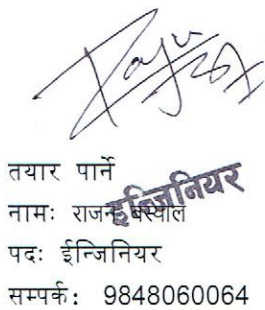 तयार पार्ने
इन्जिनियर
नामः राजन
पदः ईन्जिनियर
सम्पर्कः 9848060064